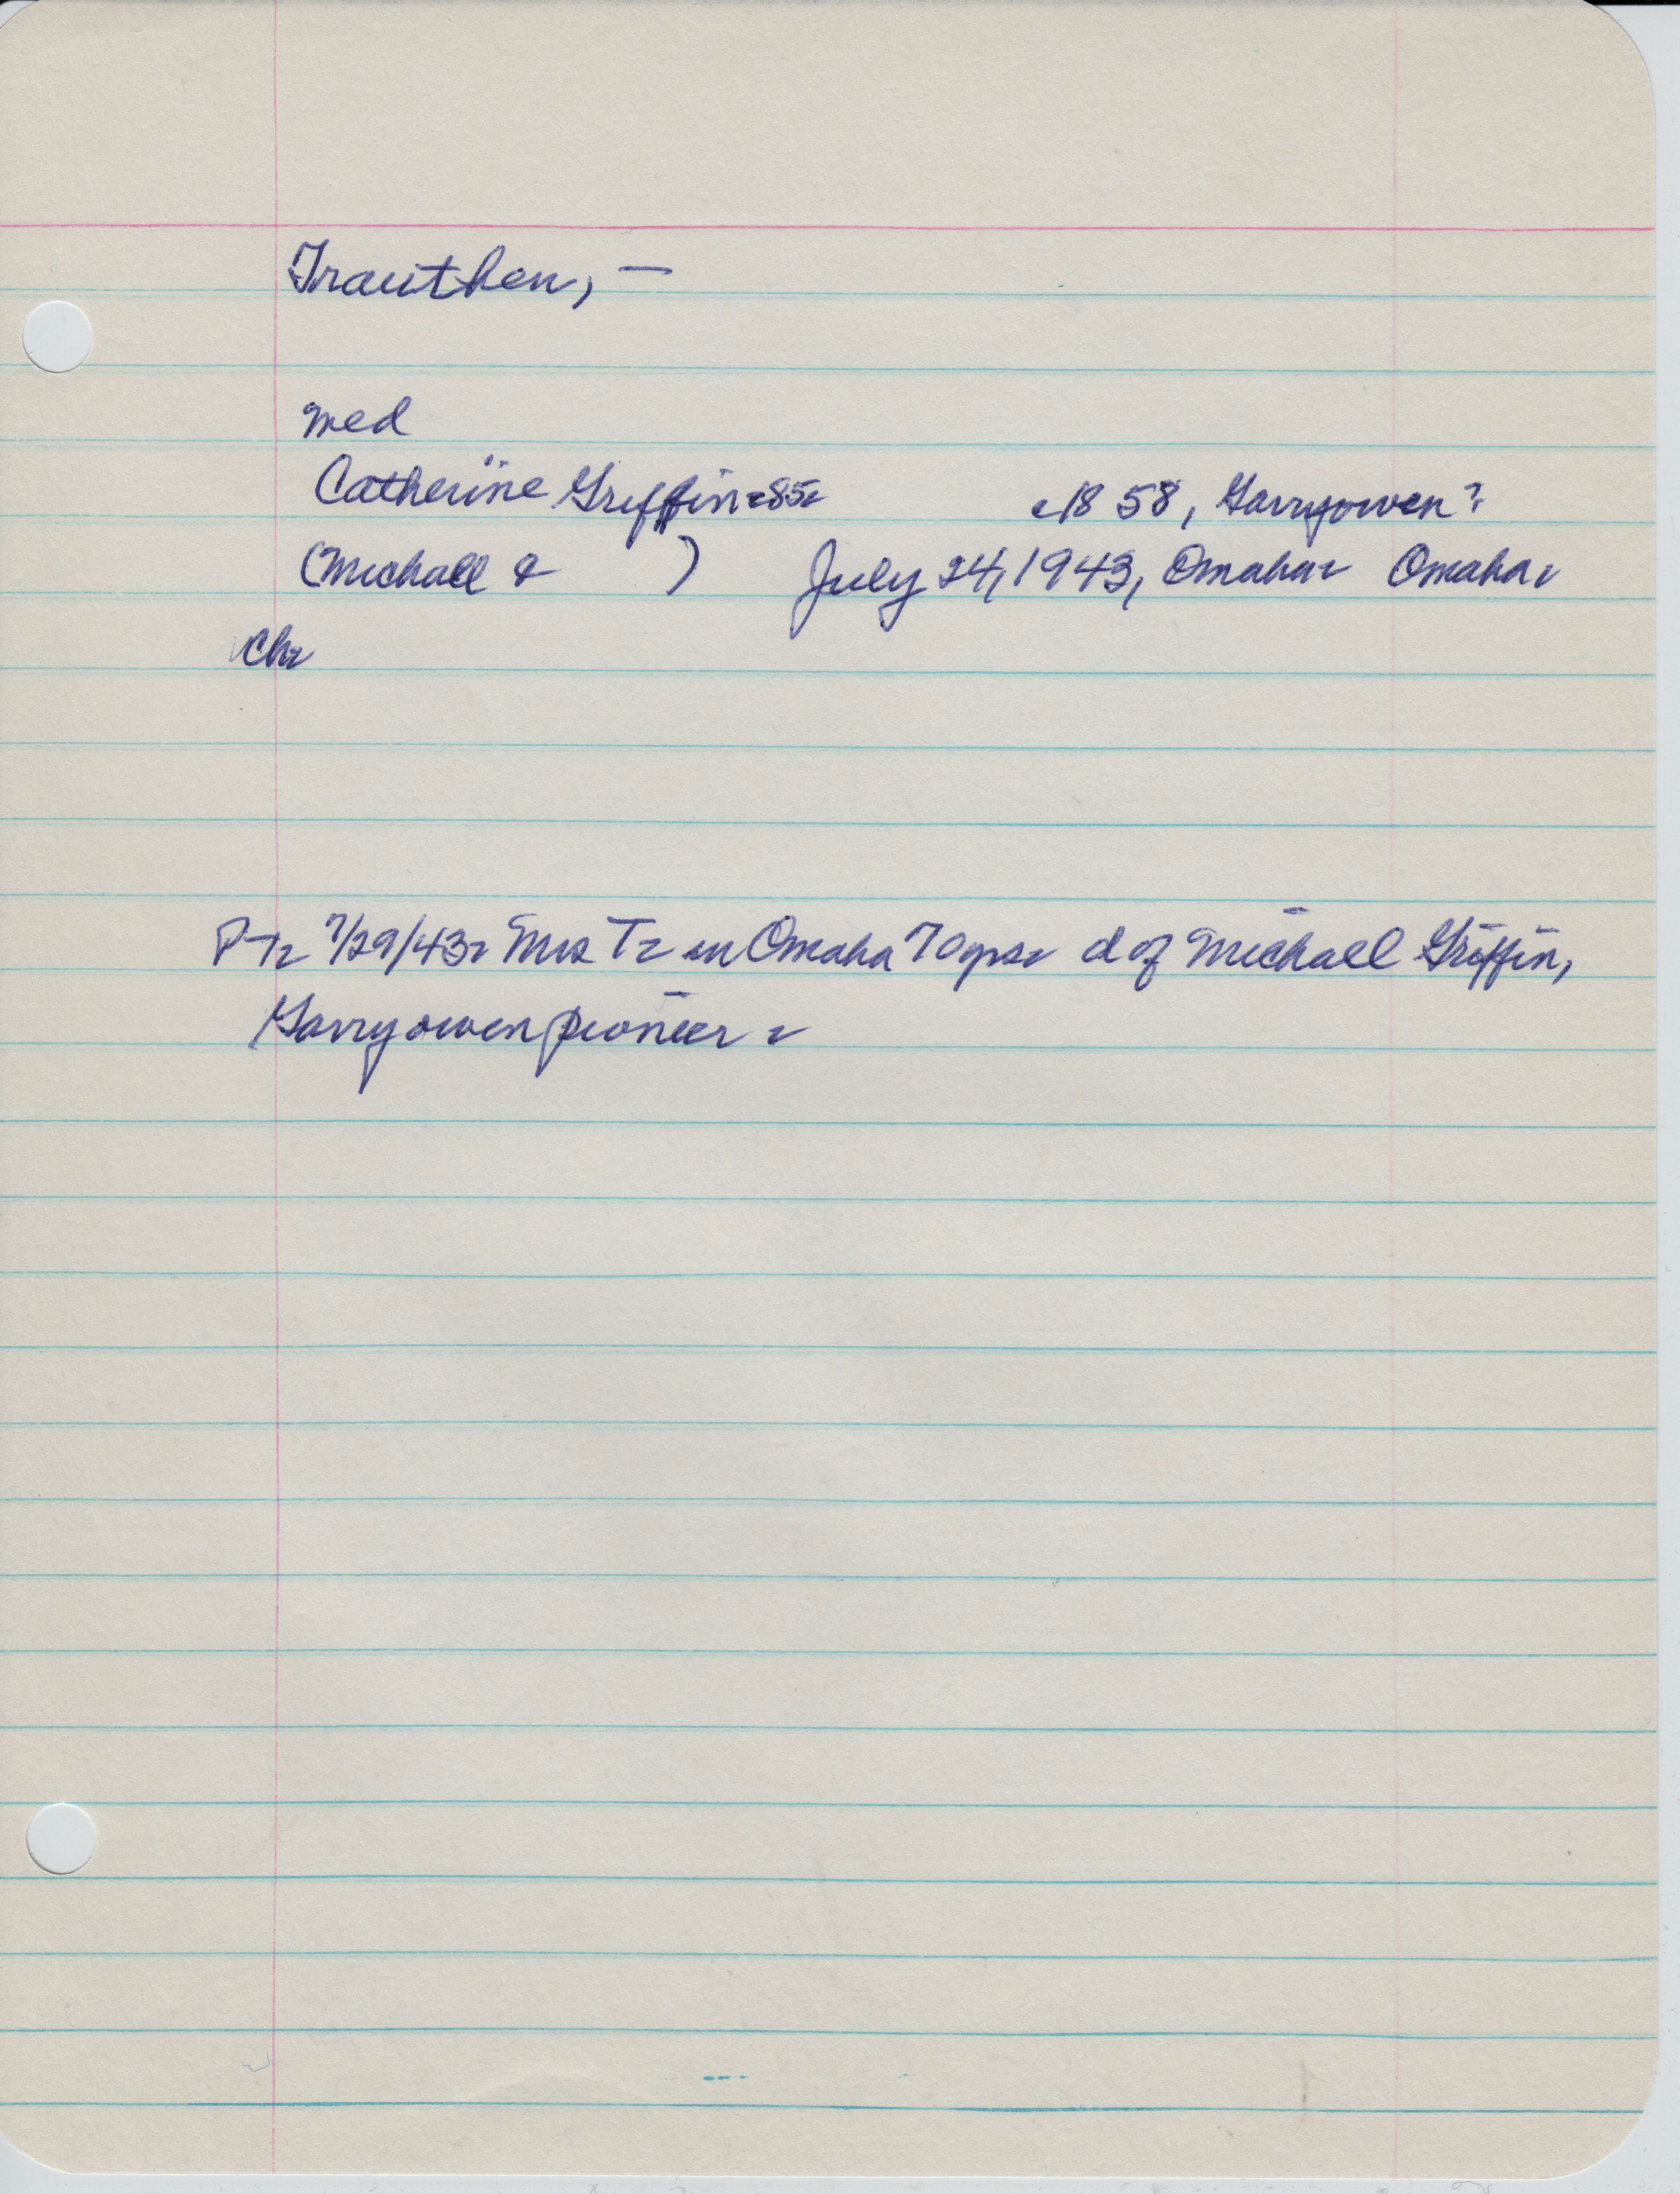 Trauthen, —
med
Catherine Griffin. 85. c1858, Garryowen?
(Michall & ) July 24, 1943, Omaha. Omaha.
Ch.
PT. 7/29/43. Mrs T. in Omaha 70 yrs. d of Michall Griffin,
Garryowen pioneer.